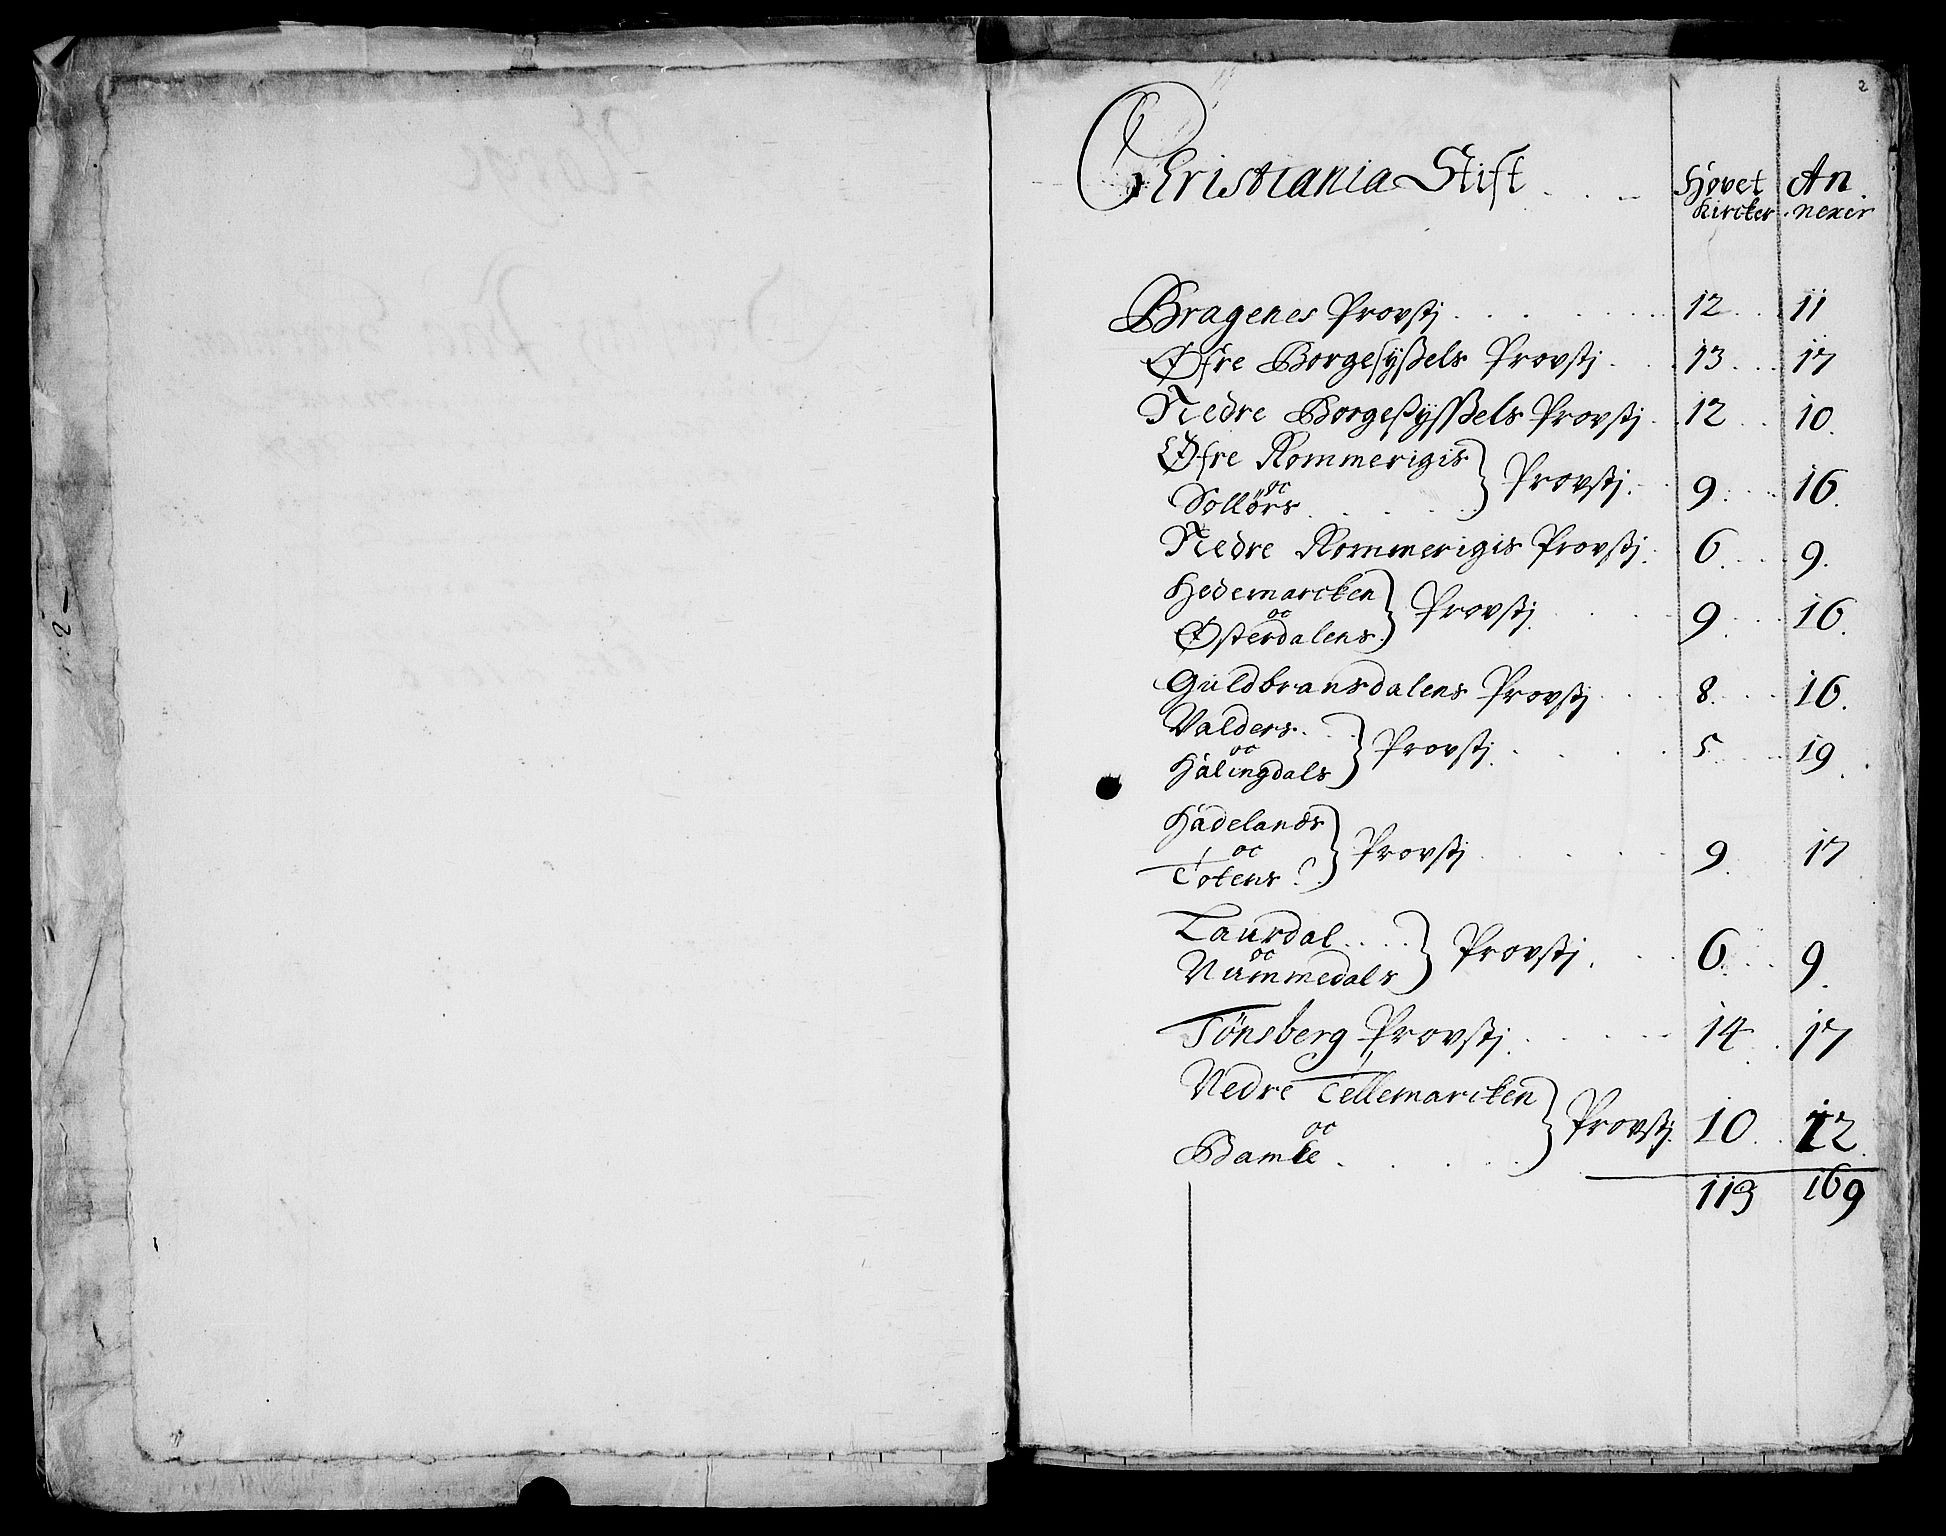 2
Christiania Stift . . . Høvet An
Kircker. nexer
Bragenes Provstj . . . . . . 12 . . 11
Øfre Borgesyßels Provstj . . . 13 . . . 17
Nedre Borgeßysßels Provstj . . 12 . . 10.
Øfre Rommerigis
oc
Sollørs . . . . . } Provstj . . 9 . . . 16.
Nedre Rommerigis Provstj . 6 . . . 9.
Hedemarcken
oc
Østerdalens } Provstj . . . 9 . . . 16.
Guldbransdalens Provstj . . . 8 . . . 16.
Valders . . .
oc
Halingdals } Provstj . . . . 5 . . . 19.
Hadelands
oc
Totens . . } Provstj . . . . 9 . . 17
Laurdal . . . .
oc
Nummedals } Provstj . . . 6 . . . 9.
Tönsberg Provstj . . . . . 14 . . 17
Nedre Tellemarcken
oc
Bamle . . . . . } Provstj . 10 . . 12.
119 169
- 2 -